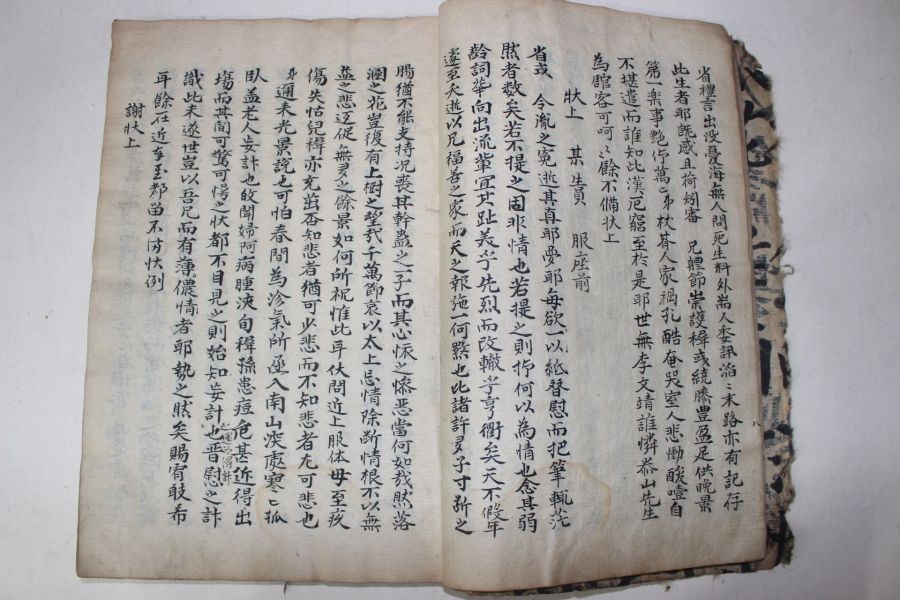 省禮言出沒憂海無人問死生料外崇人委訊滔〻末路亦有記存
此生者耶旣感且荷矧審 兄軆節崇護穉或繞膝豊盈足供晩景
第一楽事艶仰萬〻弟杖朞人家禍孔酷奄哭室人悲慟酸噎自
不堪遣而誰知此漢厄窮至於是耶世無李文靖誰憐恭山先生
為舘客可呵〻餘不備狀上
狀上 某生員 服座前
省式 令胤之寃逝其真耶夢耶每欲一以紙替慰而把筆輒茫
然者数矣若不提之固非情也若提之則抑何以為情也念其弱
齡詞華向出流輩宜其趾義乎先烈而改轍乎亨衢矣天不假年
遽至夭逝以兄福善之家而天之報施一何㸃也比諸許多子寸断之
腸猶不能支持况喪其幹蠱之子而其心懷之慘惡當何如哉然落
溷之花豈復有上樹之望哉千萬節哀以太上忘情除断情根不以無
益之悲逕促無多之餘景如何所祝惟此耳伏問近上服体毋至疚
傷失怙兒穉亦充茁否知悲者猶可少悲而不知悲者尤可悲也
弟邇來光景說也可怕春間為沴氣所逐入南山深處寒〻孤
臥盖老人妄計也敀聞婦阿病腫浹旬穉孫患痘危甚近得出
塲而其間可驚可愕之狀都不目見之則始知妄計也晋慰之計
識此未遂世豈以吾兄而有薄儂情者耶執之然矣賜宥敢希
耳餘在近至郊留不備狀例
謝狀上
八